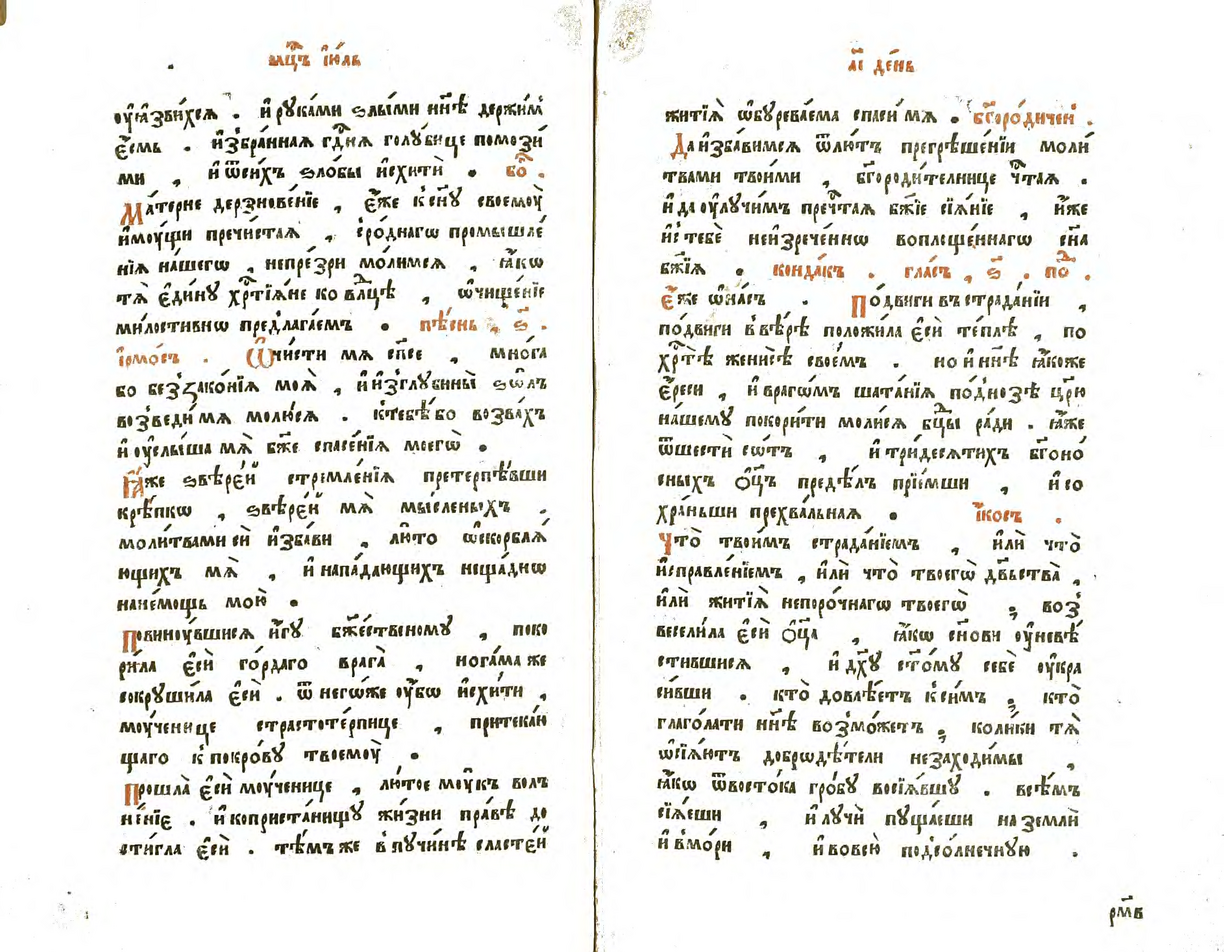 мц҇ъ і҆ю́ль
оу҆ꙗ҆звих́сѧ . и҆ рꙋка́ми ѕлы́ми нн҃ѣ держи́м
є҆́смь . и҆збра́ннаѧ гд҇нѧ голꙋ́бице помози́
ми , и҆ ѿси́хъ ѕло́бы и҆схитѝ . бо҇ .
Ма́терне дерзнове́нїе , є҆́же к сн҃ꙋ своемоу̀
и҆моу́щи пречи́стаѧ , сро́днагѡ промышле́
нїѧ на́шегѡ , непре́зри мо́лимсѧ , ꙗ҆́кѡ
тѧ̀ є҆ди́нꙋ хрⷭ҇тїѧ́не ко влⷣцѣ , ѡ҆чище́нїе
ми́лостивнѡ предлага́емъ . пѣ́снь , ѕ҃ .
і҆рмо́съ . Ѡ҆чи́сти мѧ сп҃се , мно́га
бо беззако́нїѧ моѧ̀ , и҆ и҆зглꙋбины̀ ѕѡ́лъ
возведи́ мѧ молю́сѧ . к тебѣ́ бо возва́хъ
и҆ оу҆слы́ша мѧ̀ бж҃е спасе́нїѧ моегѡ̀ .
Ꙗ҆́же ѕвѣре́й стремле́нїѧ претерпѣ́вши
крѣ́пкѡ , ѕвѣре́й мѧ̀ мы́сленыхъ .
моли́твами сѝ и҆зба́ви , лю́то ѡ҆скорблѧ́
ющихъ мѧ̀ , и҆ напа́дающихъ неща́днѡ
нане́мощь мою̀ .
Повинꙋ́вшисѧ и҆́гꙋ бж҃е́ственомꙋ , поко
ри́ла є҆сѝ го́рдаго врага̀ , нога́ма же
сокрꙋши́ла є҆сѝ . ѿ негѡ́же оу҆́бѡ и҆схитѝ ,
моу́ченице страстоте́рпице , притека́ю
щаго к покро́вꙋ твоемоу̀ .
Прошла̀ є҆сѝ моу́ченице , лю́тое моу́къ вол
не́нїе . и҆ копристанищꙋ жи́зни пра́вѣ до
сти́гла є҆сѝ . тѣ́мъ же в пꙋчи́нѣ сласте́й
аі҃ де́нь
житїѧ̀ ѡ҆бꙋрева́ема спаси́ мѧ . бг҃оро́дичен .
Да и҆зба́вимсѧ ѿ лю́тъ прегрѣше́нїи моли́
твами твои́ми , бг҃ороди́тельнице чⷭ҇таѧ .
и҆ да оу҆лꙋ́чимъ пречⷭ҇таѧ бж҃їе сїѧ́нїе , и҆́же
и҆с тебѐ неи҆зрече́ннѡ воплоще́ннагѡ сн҃а
бж҃їѧ . конда́къ . гла́съ , ѕ҃ . поⷣ .
Є҆́же ѡ҆ на́съ . По́двиги въ страда́нїи ,
по́двиги в вѣ́рѣ положи́ла є҆сѝ те́плѣ , по
хрⷭ҇тѣ́ женисѣ̀ свое́мъ . но и҆ нн҃ѣ ꙗ҆́коже
є҆́реси , и҆ врагѡ́мъ шата́нїѧ подно́зѣ цр҃ю
на́шемꙋ покори́ти моли́сѧ бц҃ы ра́ди . ꙗ҆́же
ѿ шести́ сѡ́тъ , и҆ три́десѧтихъ бг҃оно́
сныхъ ѻ҆ц҃ъ предѣ́лъ прїе́мши , и҆ со
храньши прехва́льнаѧ . і҆́косъ .
Что̀ твои́мъ страда́нїемъ , и҆лѝ что̀
и҆справле́нїемъ , и҆лѝ что̀ твоегѡ̀ дв҃ьства ,
и҆лѝ житїѧ̀ непоро́чнагѡ твоегѡ̀ ; воз
весели́ла є҆сѝ ѻ҆ц҃а , ꙗ҆́кѡ сн҃ови оу҆невѣ́
стившисѧ , и҆ дх҃ꙋ ст҃о́мꙋ себѐ оу҆кра
си́вши . кто̀ довлѣ́етъ к си́мъ , кто̀
глаго́лати нн҃ѣ возмо́жетъ ; коли́ки тѧ̀
ѡ҆сїѧ́ютъ добрѡдѣ́тели незаходи́мы ,
ꙗ҆́кѡ ѿ восто́ка гро́бꙋ восїѧ́вшꙋ . всѣ́мъ
сїѧ́еши , и҆ лꙋчѝ пꙋща́еши на землѝ
и҆ в мо́ри , и҆ во всю̀ подсо́лнечнꙋю .
рм҃в